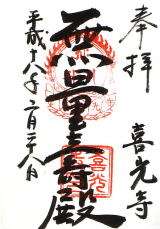 奉拝
無量壽殿
喜光寺
平成十八年二月二十八日